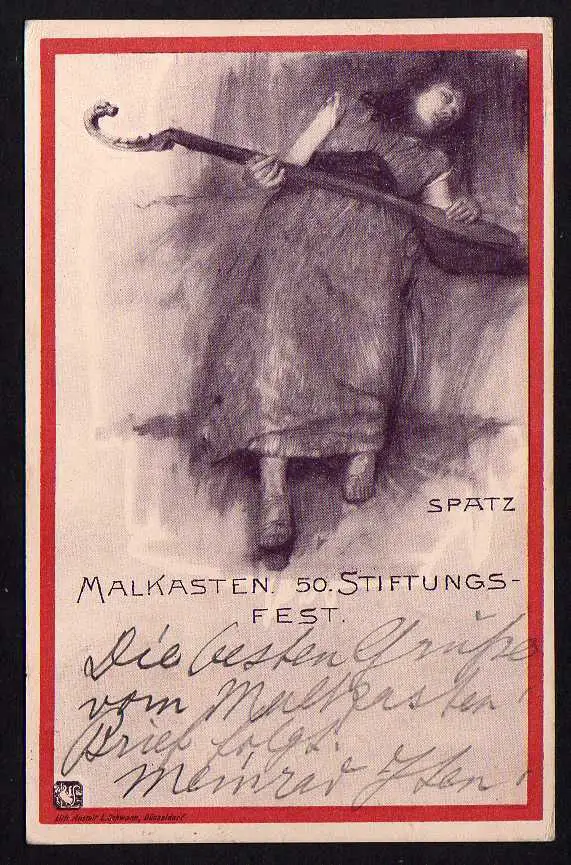 SPATZ
MALKASTEN. 50. STIFTUNGS-
FEST.
Die besten Grüße
vom Malkasten!
Brief folgt.
Meinrad
Lith. Anstalt L. Schwann, Düsseldorf.